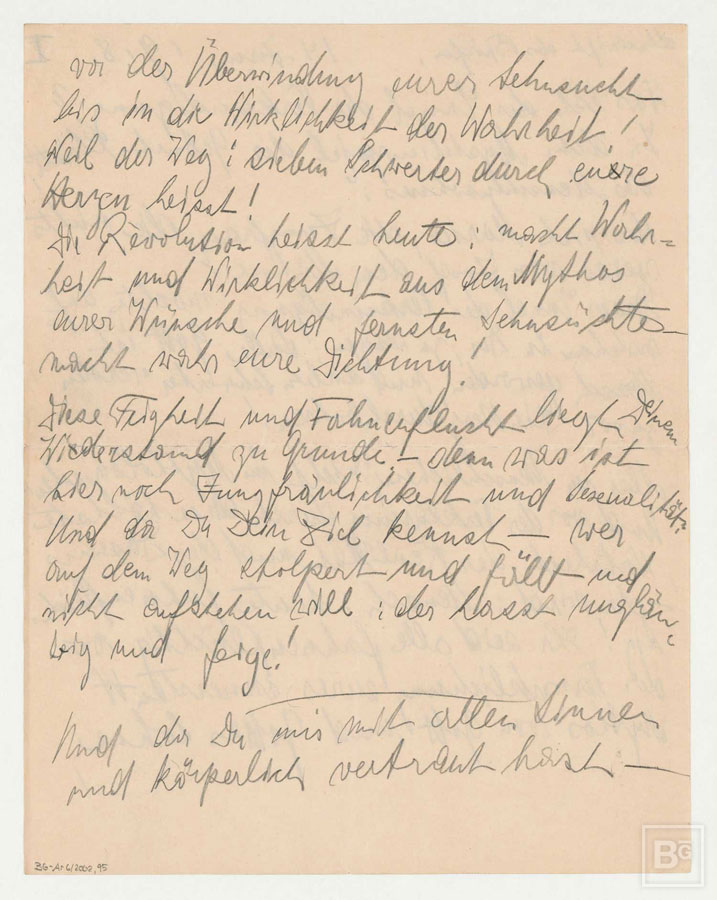 vor der Überwindung eurer Sehnsucht
bis in die Wirklichkeit der Wahrheit!
Weil der Weg: sieben Schwerter durch euere
Herzen heisst!
Die Revolution heisst heute: macht Wahr=
heit und Wirklichkeit aus dem Mythos
eurer Wünsche und fernsten Sehnsüchte –
macht wahr eure Dichtung!
Diese Feigheit und Fahnenflucht liegt Deinem
Wiederstand zu Grunde – denn was ist
hier noch Jungfräulichkeit und Sexualität?
Und da Du Dein Ziel kennst – wer
auf dem Weg stolpert und fällt und
nicht aufstehen will: der hasst ungläu=
big und feige!
Und da Du mir mit allen Sinnen
und körperlich vertraut hast –
BG-Ar 6/2002,95
BG